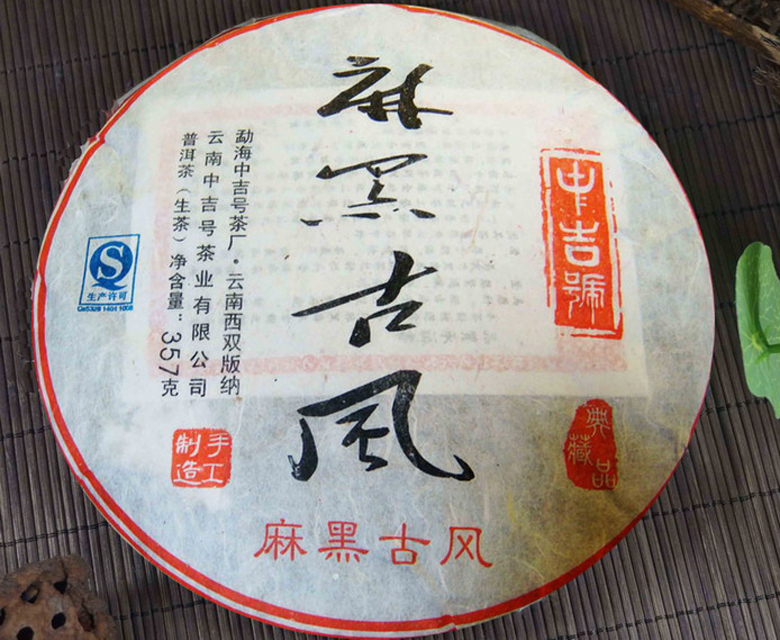 麻黑古风
中吉號
勐海中吉号茶厂·云南西双版纳
云南中吉号茶业有限公司
普洱茶（生茶）净含量：357克
生产许可
QS5328 1401 1008
手工
制造
典藏品
麻黑古风